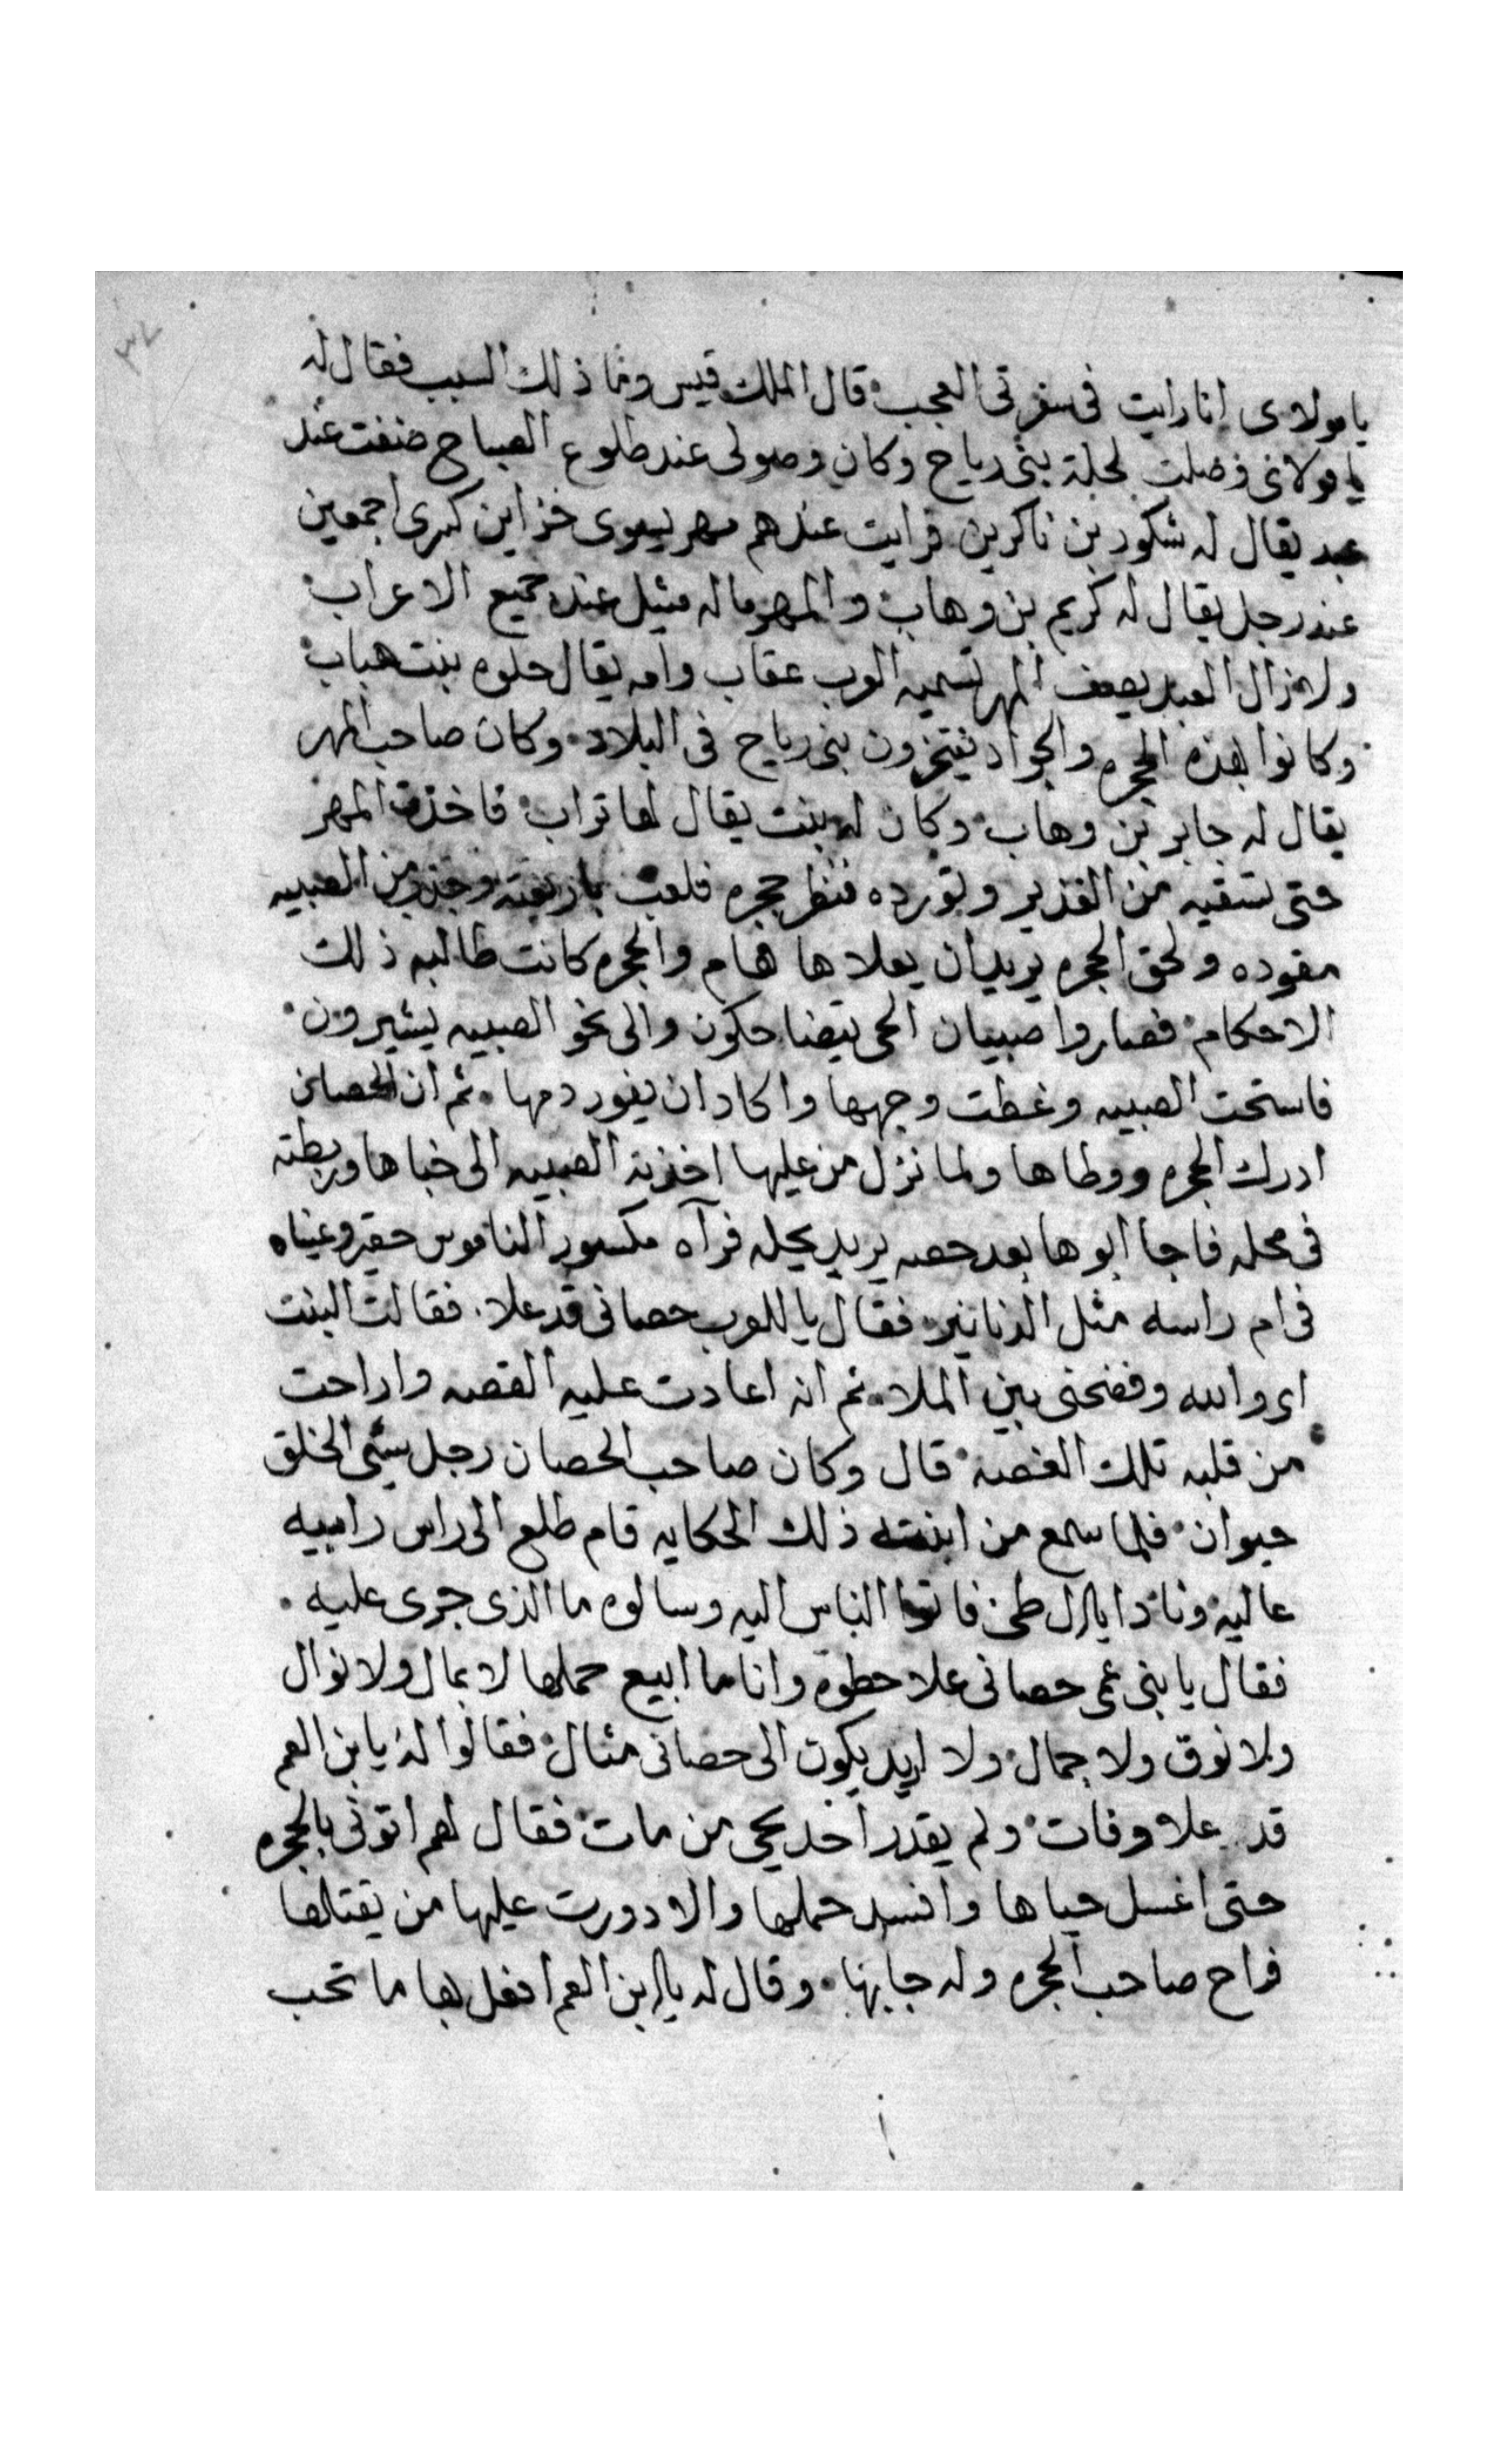 ٣٧
يا مولاى انا رايت فى سفرتى العجب قال الملك قيس وما ذلك السبب فقال له
يا مولاى وصلت لحلة بنى رياح وكان وصولى عند طلوع الصباح ضفت عند
عبد يقال له شكور بن ناكرين فرايت عندهم مهر يسوى خزاين كسرى اجمعين
عند رجل يقال له كريم بن وهاب والمهر ماله مثيل عند جميع الاعراب
ولا زال العبد يصف المهر تسميه العرب عقاب وامه يقال حلوه بنت هباب
وكانوا بهذه الحجره والجواد يفتخرون بنى رياح فى البلاد وكان صاحب المهر
يقال له جابر بن وهاب وكان له بنت يقال لها تراب فاخذت المهر
حتى تسقيه من الغدير وتورده فنظر حجره فلعب باربعته وجذب من الصبيه
مقوده ولحق الحجره يريد ان يعلاها هام والحجره كانت طالبه ذلك
الاحكام فصاروا صبيان الحى يتضاحكون والى نحو الصبيه يشيرون
فاستحت الصبيه وغطت وجهها واكاد ان يفور دمها ثم ان الحصان
ادرك الحجره ووطاها ولما نزل من عليها اخذته الصبيه الى خباها وربطته
فى محله فاجا ابوها بعد حصه يريد يحله فرآه مكسور الناموس حقير وعيناه
فى ام راسه مثل الدنانير فقال يا للعرب حصانى قد علا فقالت البنت
اى والله وفضحنى بين الملا ثم انه اعادت عليه القصه واراحت
من قلبه تلك الغصه قال وكان صاحب الحصان رجل سئى الخلق
حيوان فلما سمع من ابنته ذلك الحكايه قام طلع الى راس رابيه
عاليه ونادا يا ال طى فاتوا الناس اليه وسالوه ما الذى جرى عليه
فقال يا بنى عمى حصانى علا حطوه وانا ما ابيع حملها لا بمال ولا نوال
ولا نوق ولا جمال ولا اريد يكون الى حصانى مثال فقالوا له يا بن العم
قد علا وفات ولم يقدر احد يحى من مات فقال لهم اتونى بالحجره
حتى اغسل حياها وافسد حملها والا دورت عليها من يقتلها
فراح صاحب الحجره وله جابها وقال له يا بن العم افعل بها ما تحب